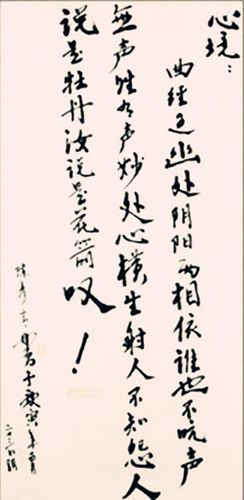 心境：
曲径通幽处阴阳两相依谁也不吭声
无声胜有声妙处心横生射人不知怨人
说是牡丹汝说是花箭叹！
书于庚寅年